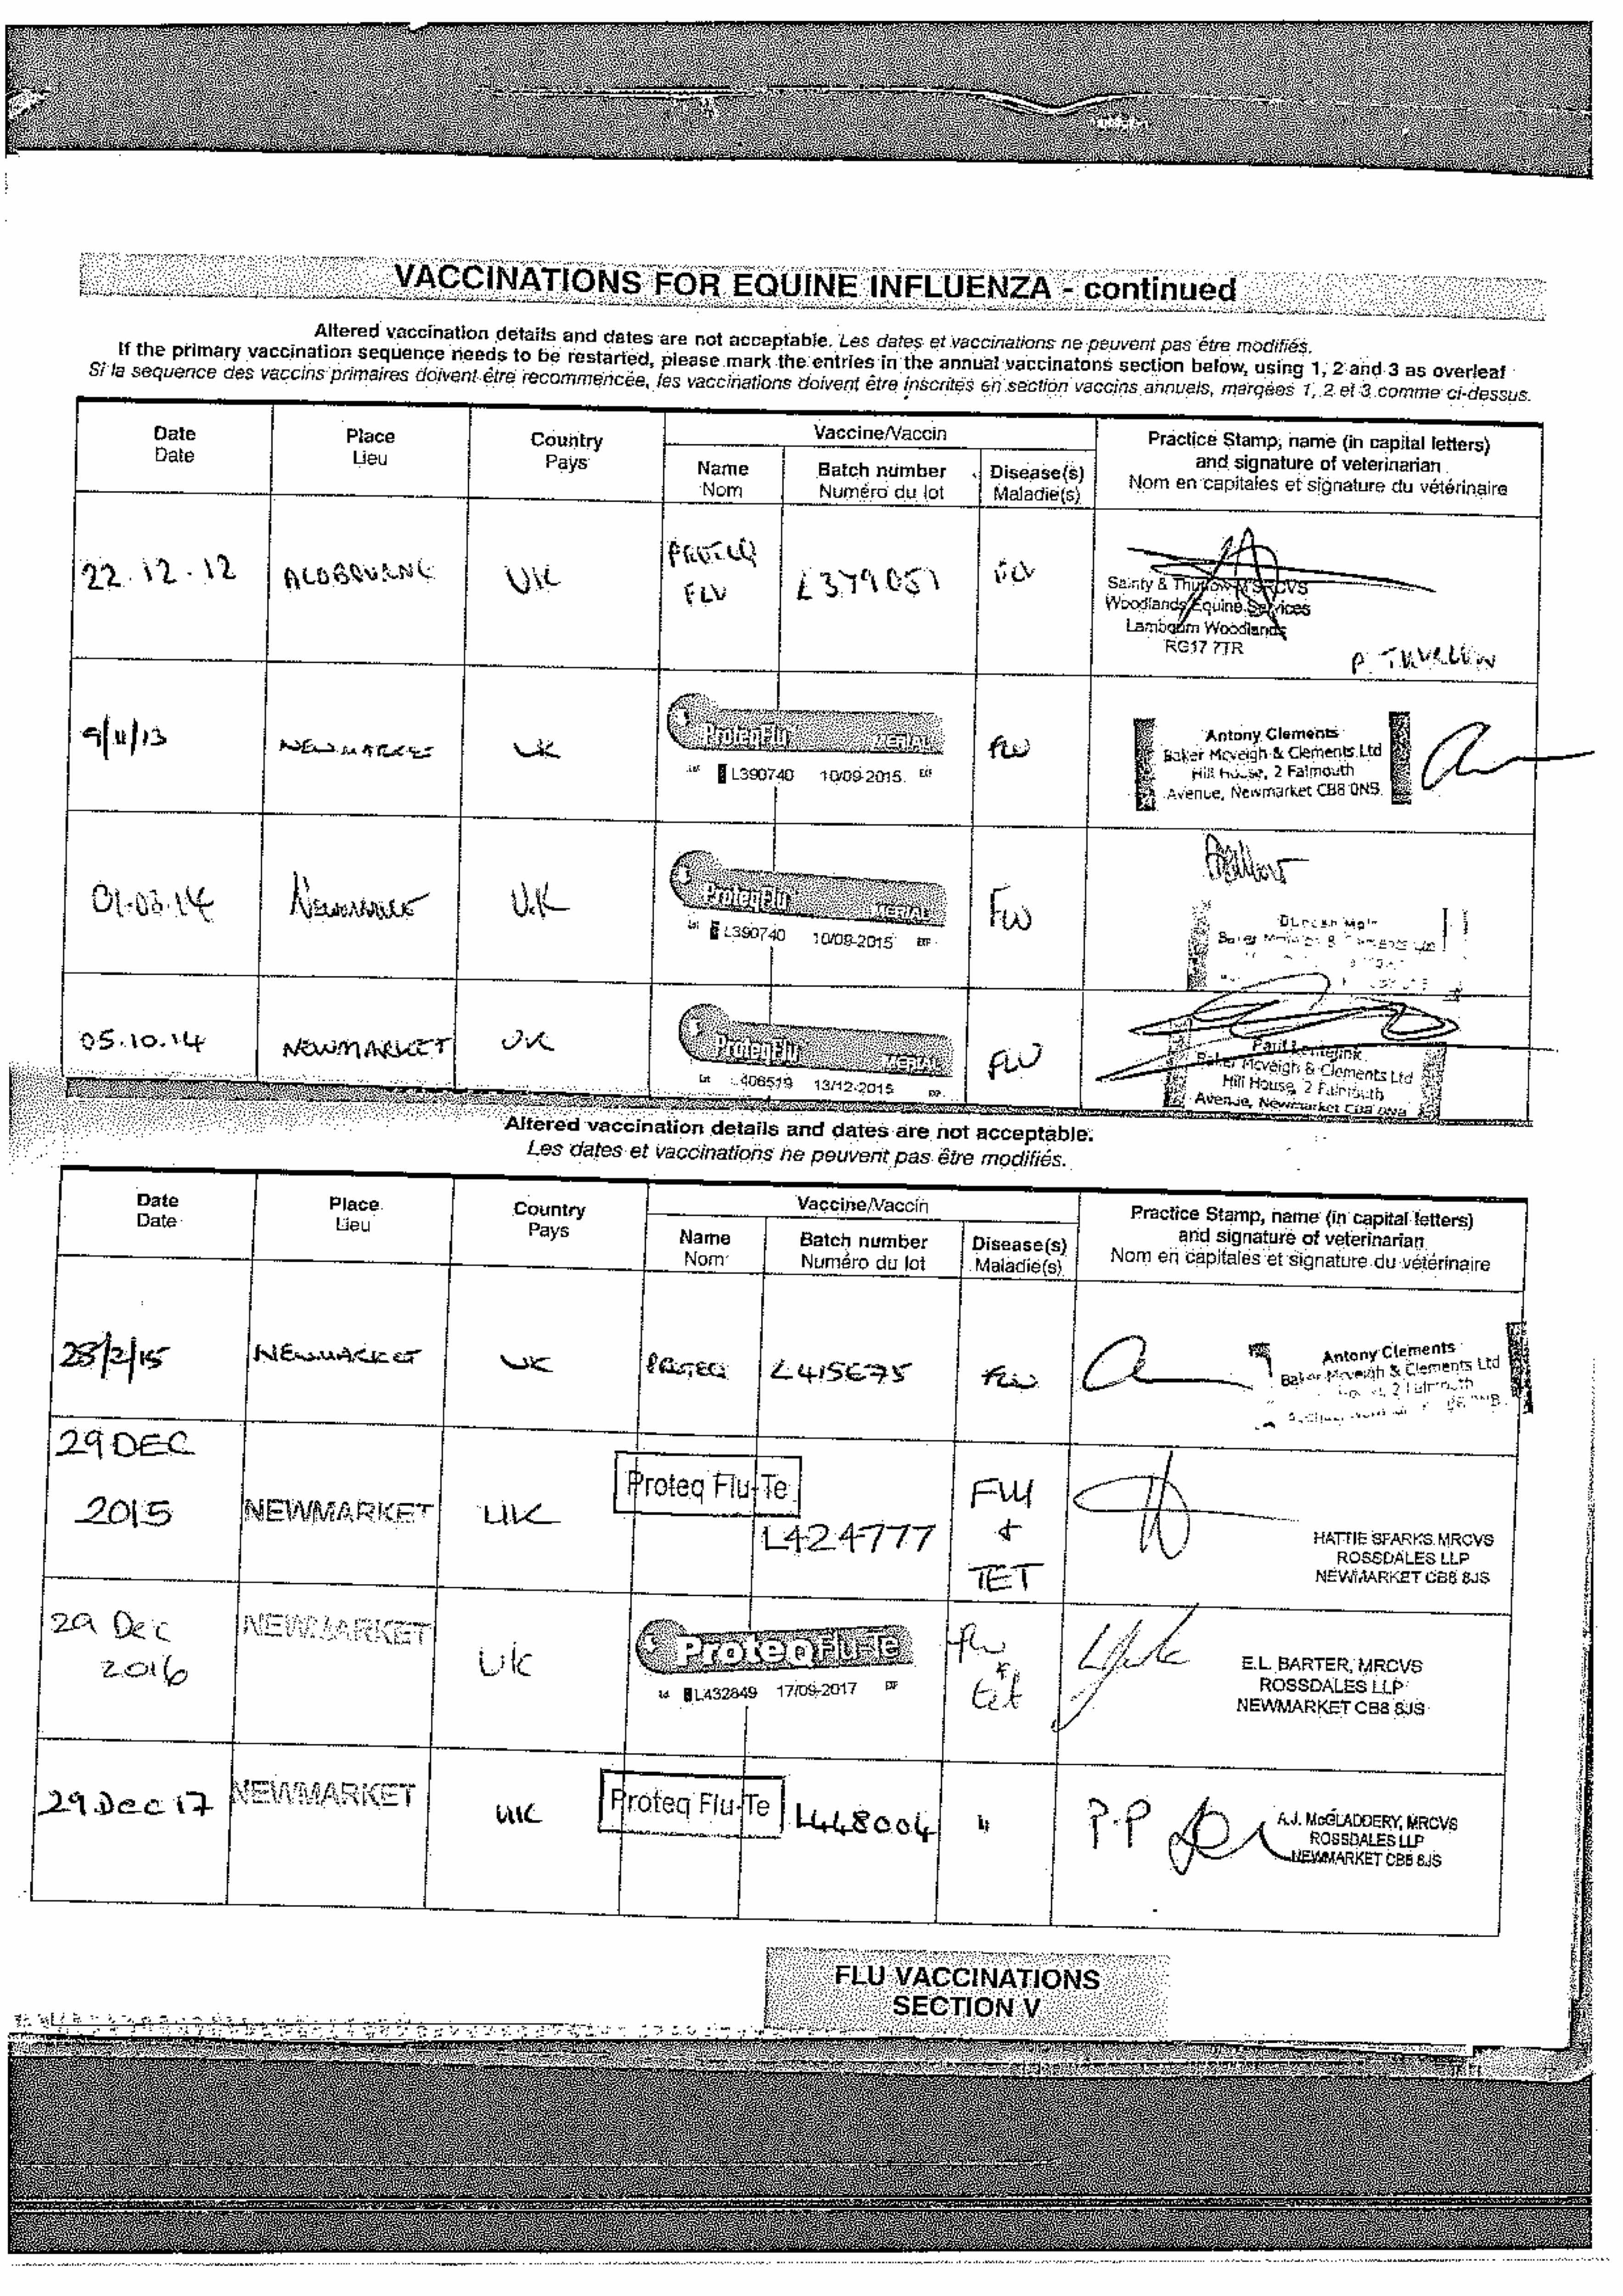 VACCINATIONS FOR EQUINE INFLUENZA - continued
Altered vaccination details and dates are not acceptable. Les dates et vaccinations ne peuvent pas être modifiés.
If the primary vaccination sequence needs to be restarted, please mark the entries in the annual vaccinatons section below, using 1, 2 and 3 as overleaf
Si la sequence des vaccins primaires doivent être recommencée, les vaccinations doivent être inscrites en section vaccins annuels, margées 1, 2 et 3 comme ci-dessus.
Date Place Country Vaccine/Vaccin Practice Stamp, name (in capital letters)
Date Lieu Pays Name Batch number Disease(s) and signature of veterinarian
Nom Numéro du lot Maladie(s) Nom en capitales et signature du vétérinaire
22.12.12 ALDBOURNE UK PROTEQ FLU L379051 FLU
Sainty & Thurlow MsRCVS
Woodlands Equine Services
Lambourn Woodlands
RG17 7TR
P. THURLOW
9/11/13 NEWMARKET UK ProteqFlu MERIAL FLU
Lot L390740 10/09-2015 EXP
Antony Clements
Baker Mcveigh & Clements Ltd
Hill House, 2 Falmouth
Avenue, Newmarket CB8 0NS
01.03.14 NEWMARKET U.K ProteqFlu MERIAL FLU
Lot L390740 10/09-2015 EXP
Duncan
Baker Mcveigh & Clements Ltd
05.10.14 NEWMARKET UK ProteqFlu MERIAL FLU
Lot 406519 13/12-2015 EXP
Paul
Baker Mcveigh & Clements Ltd
Hill House, 2 Falmouth
Avenue, Newmarket CB8 0NS
Altered vaccination details and dates are not acceptable.
Les dates et vaccinations ne peuvent pas être modifiés.
Date Place Country Vaccine/Vaccin Practice Stamp, name (in capital letters)
Date Lieu Pays Name Batch number Disease(s) and signature of veterinarian
Nom Numéro du lot Maladie(s) Nom en capitales et signature du vétérinaire
28/2/15 NEWMARKET UK PROTEQ FLU
Antony Clements
Baker Mcveigh & Clements Ltd
29 DEC
2015 NEWMARKET UK Proteq Flu-Te L424777 FLU & TET
HATTIE SPARKS MRCVS
ROSSDALES LLP
NEWMARKET CB8 8JS
29 Dec
2016 NEWMARKET UK ProteqFlu-Te flu & tet
Lot L432849 17/09-2017 EXP
E.L. BARTER, MRCVS
ROSSDALES LLP
NEWMARKET CB8 8JS
29 Dec 17 NEWMARKET UK Proteq Flu-Te L448004 " P.P
A.J. McGLADDERY, MRCVS
ROSSDALES LLP
NEWMARKET CB8 8JS
FLU VACCINATIONS
SECTION V